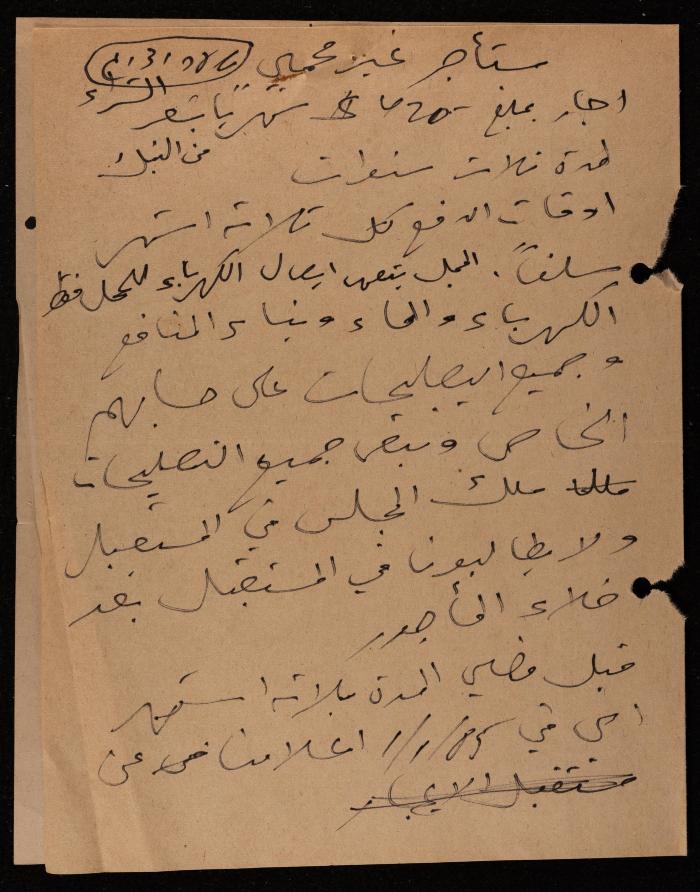 مستأجر غير محمي
اجار بمبلغ 20 شهرياً بسعر الشراء
من البنك
لمدة ثلاث سنوات
اوقات الدفع كل ثلاثة اشهر
سلفاً. المجلس يتعهد ايصال الكهرباء للمحل فقط
الكهرباء والماء وبناء المنافع
وجميع التصليحات على حسابهم
الخاص وتبقى جميع التصليحات
ملك المجلس في المستقبل
ولا يطالبونا في المستقبل بعد
خلاء المأجور
قبل مضي المدة بثلاثة اشهر
اي في 1/1/85 اعلامنا عن
مستقبل الايجار